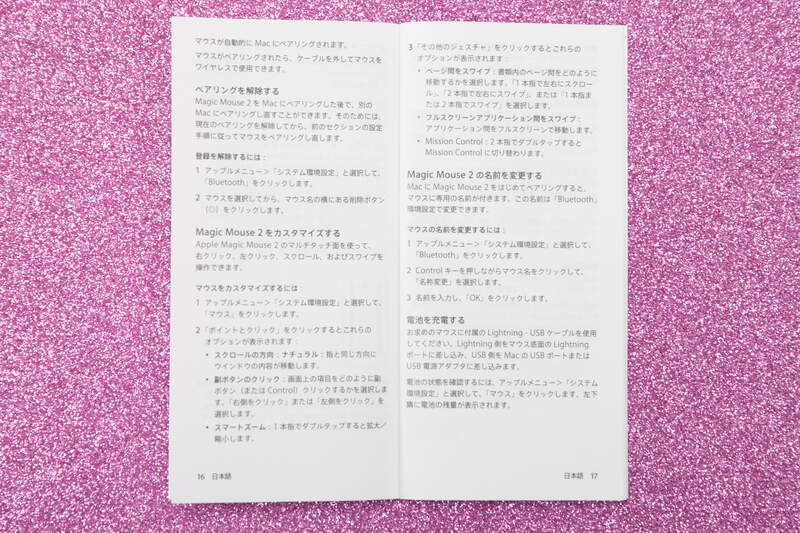 マウスが自動的に Mac にペアリングされます。
マウスがペアリングされたら、ケーブルを外してマウスを
ワイヤレスで使用できます。
ペアリングを解除する
Magic Mouse 2 を Mac にペアリングした後で、別の
Mac にペアリングし直すことができます。そのためには、
現在のペアリングを解除してから、前のセクションの設定
手順に従ってマウスをペアリングし直します。
登録を解除するには：
1 アップルメニュー＞「システム環境設定」と選択して、
「Bluetooth」をクリックします。
2 マウスを選択してから、マウス名の横にある削除ボタン
をクリックします。
Magic Mouse 2 をカスタマイズする
Apple Magic Mouse 2 のマルチタッチ面を使って、
右クリック、左クリック、スクロール、およびスワイプを
操作できます。
マウスをカスタマイズするには：
1 アップルメニュー＞「システム環境設定」と選択して、
「マウス」をクリックします。
2 「ポイントとクリック」をクリックするとこれらの
オプションが表示されます：
• スクロールの方向：ナチュラル：指と同じ方向に
ウインドウの内容が移動します。
• 副ボタンのクリック：画面上の項目をどのように副
ボタン（または Control）クリックするかを選択しま
す。「右側をクリック」または「左側をクリック」を
選択します。
• スマートズーム：1 本指でダブルタップすると拡大／
縮小します。
16 日本語
3 「その他のジェスチャ」をクリックするとこれらの
オプションが表示されます：
• ページ間をスワイプ：書類内のページ間をどのように
移動するかを選択します。「1 本指で左右にスクロー
ル」、「2 本指で左右にスワイプ」、または「1 本指ま
たは 2 本指でスワイプ」を選択します。
• フルスクリーンアプリケーション間をスワイプ：
アプリケーション間をフルスクリーンで移動します。
• Mission Control：2 本指でダブルタップすると
Mission Control に切り替わります。
Magic Mouse 2 の名前を変更する
Mac に Magic Mouse 2 をはじめてペアリングすると、
マウスに専用の名前が付きます。この名前は「Bluetooth」
環境設定で変更できます。
マウスの名前を変更するには：
1 アップルメニュー＞「システム環境設定」と選択して、
「Bluetooth」をクリックします。
2 Control キーを押しながらマウス名をクリックして、
「名称変更」を選択します。
3 名前を入力し、「OK」をクリックします。
電池を充電する
お求めのマウスに付属の Lightning - USB ケーブルを使用
してください。Lightning 側をマウス底面の Lightning
ポートに差し込み、USB 側を Mac の USB ポートまたは
USB 電源アダプタに差し込みます。
電池の状態を確認するには、アップルメニュー＞「システム
環境設定」と選択して、「マウス」をクリックします。左下
隅に電池の残量が表示されます。
日本語 17